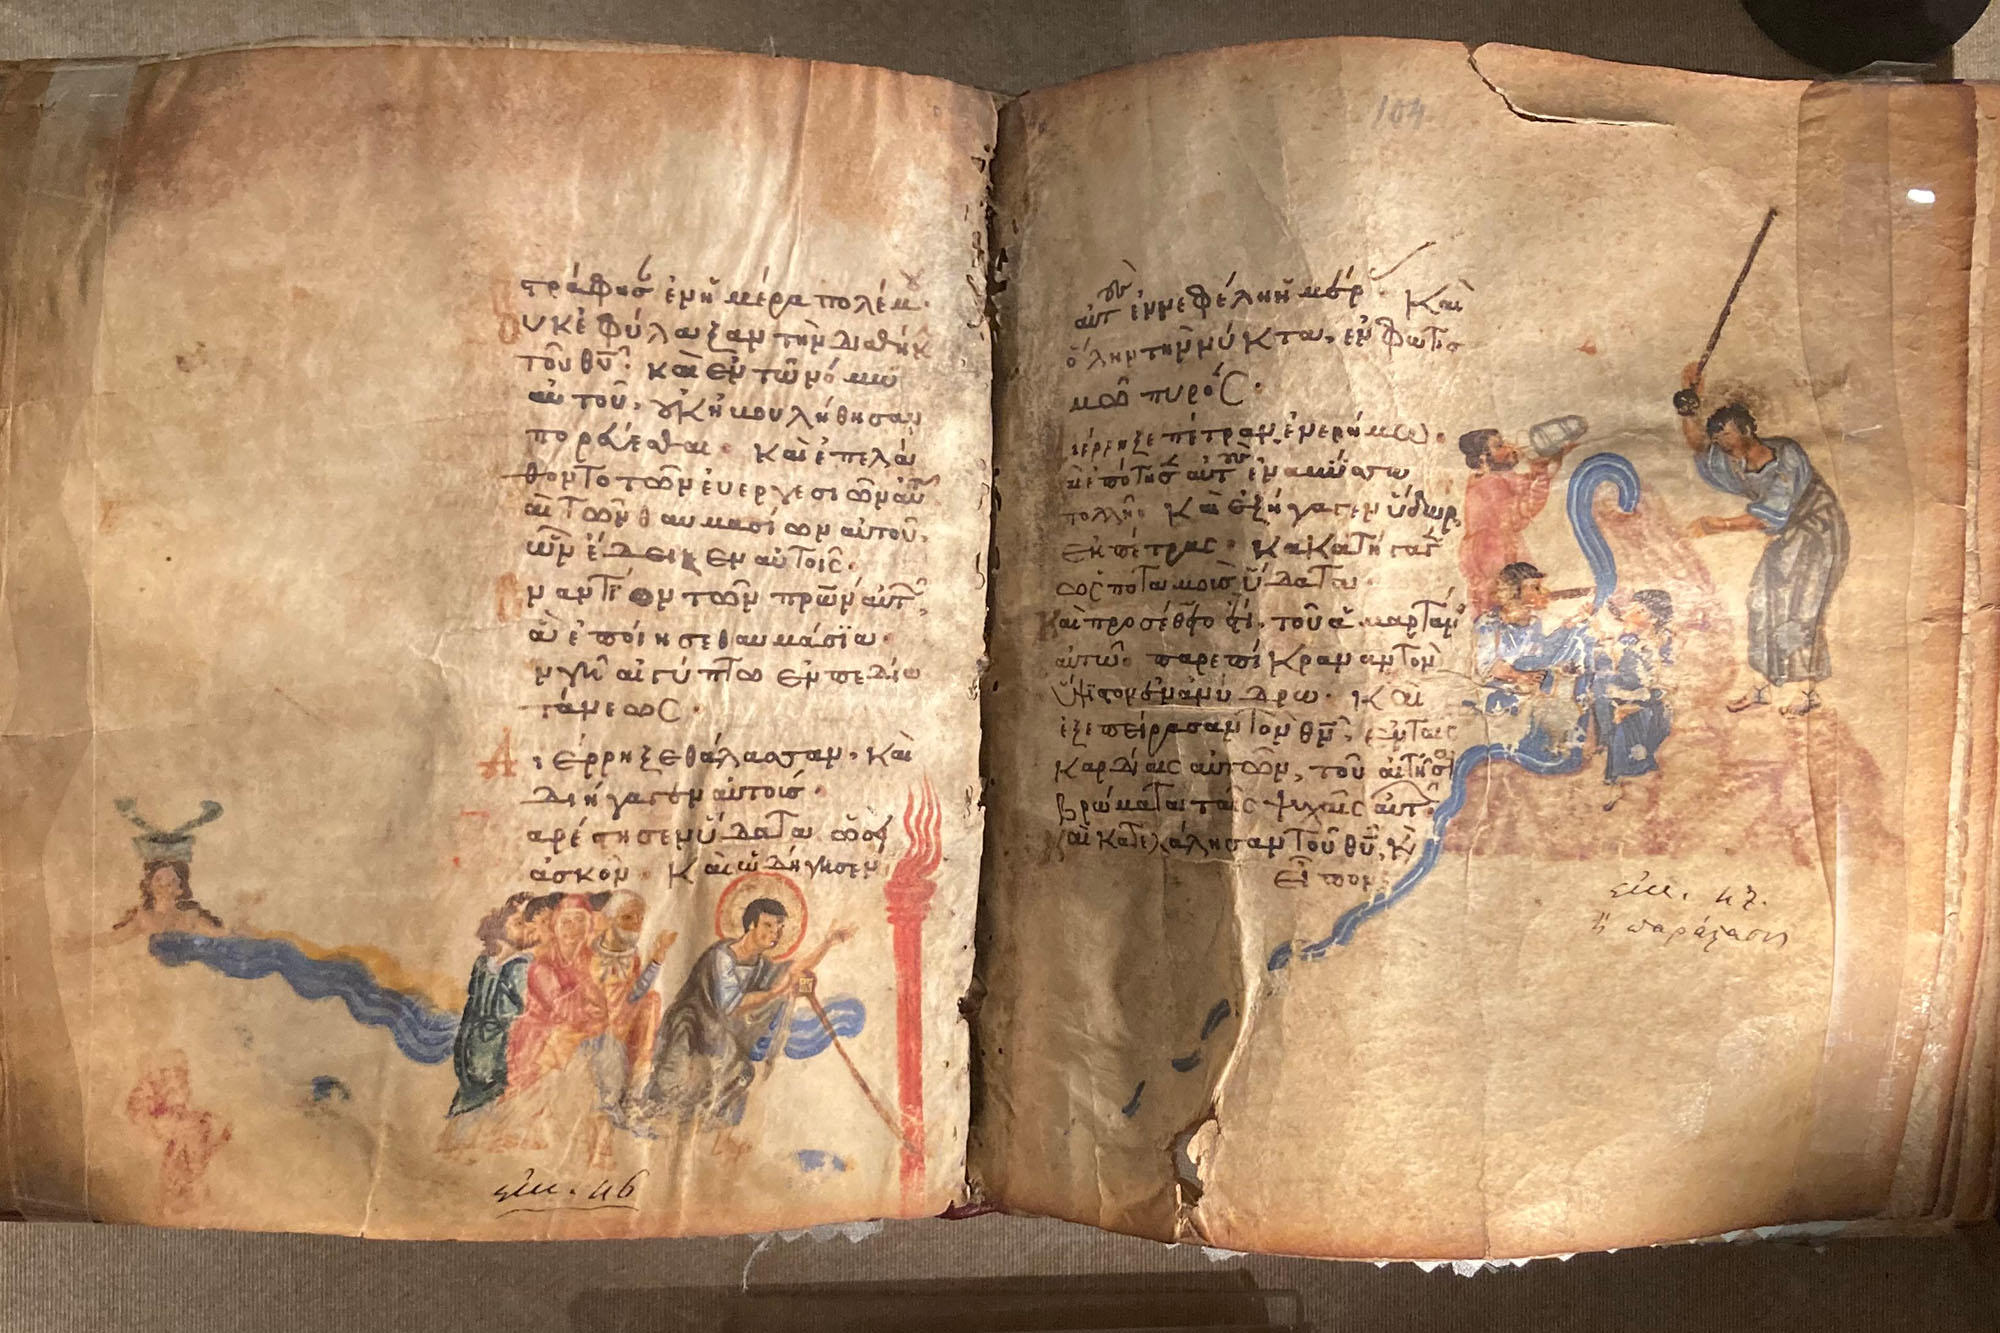 τράφησ ἐν ἡμέρα πολέμου·
Οὐκ ἐφύλαξαν τὴν διαθήκ
τοῦ θυ̅· καὶ ἐν τῶ νόμω
αὐτοῦ, οὐκ ἠβουλήθησαν
πορεύεσθαι· Καὶ ἐπελά
θοντο τῶν εὐεργεσιῶν αὐτ
καὶ τῶν θαυμασίων αὐτοῦ,
ὧν ἔδειξεν αὐτοῖς·
Εναντίον τῶν πρ̅ων αὐτ,
ἃ ἐποίησε θαυμάσια·
ἐν γῆ αἰγύπτω ἐν πεδίω
τάνεως·
Διέρρηξε θάλασσαν, καὶ
διήγαγεν αὐτούσ·
παρέστησεν ὕδατα ὡσεὶ
ἀσκόν· Καὶ ὡδήγησεν
εἰκ. 46
104
αὐτοὺ ἐν νεφέλη ἡμέρ· Καὶ
ὅλην τὴν νύκτα, ἐν φωτισ
μῶ πυρός·
Διέρρηξε πέτραν ἐν ἐρήμω·
κὲ ἐπότισ αὐτοὺ ἐν ἀβύσσω
πολλῆ· Καὶ ἐξήγαγεν ὕδωρ
ἐκ πέτρας· κ κατήγαγ
ὡς ποταμοὺσ ὕδατα·
Καὶ προσέθεντο ἔτι, τοῦ ἁμαρτάν
αὐτῶ· παρεπίκραναν τὸν
ὕψιστον ἐν ἀνύδρω· Καὶ
ἐξεπείρασαν τὸν θν̅, ἐν ταῖς
καρδίαις αὐτῶν, τοῦ αἰτῆσαι
βρώματα ταῖς ψυχαῖς αὐτ
καὶ κατελάλησαν τοῦ θυ̅, κ
εἶπον
εἰκ. 47.